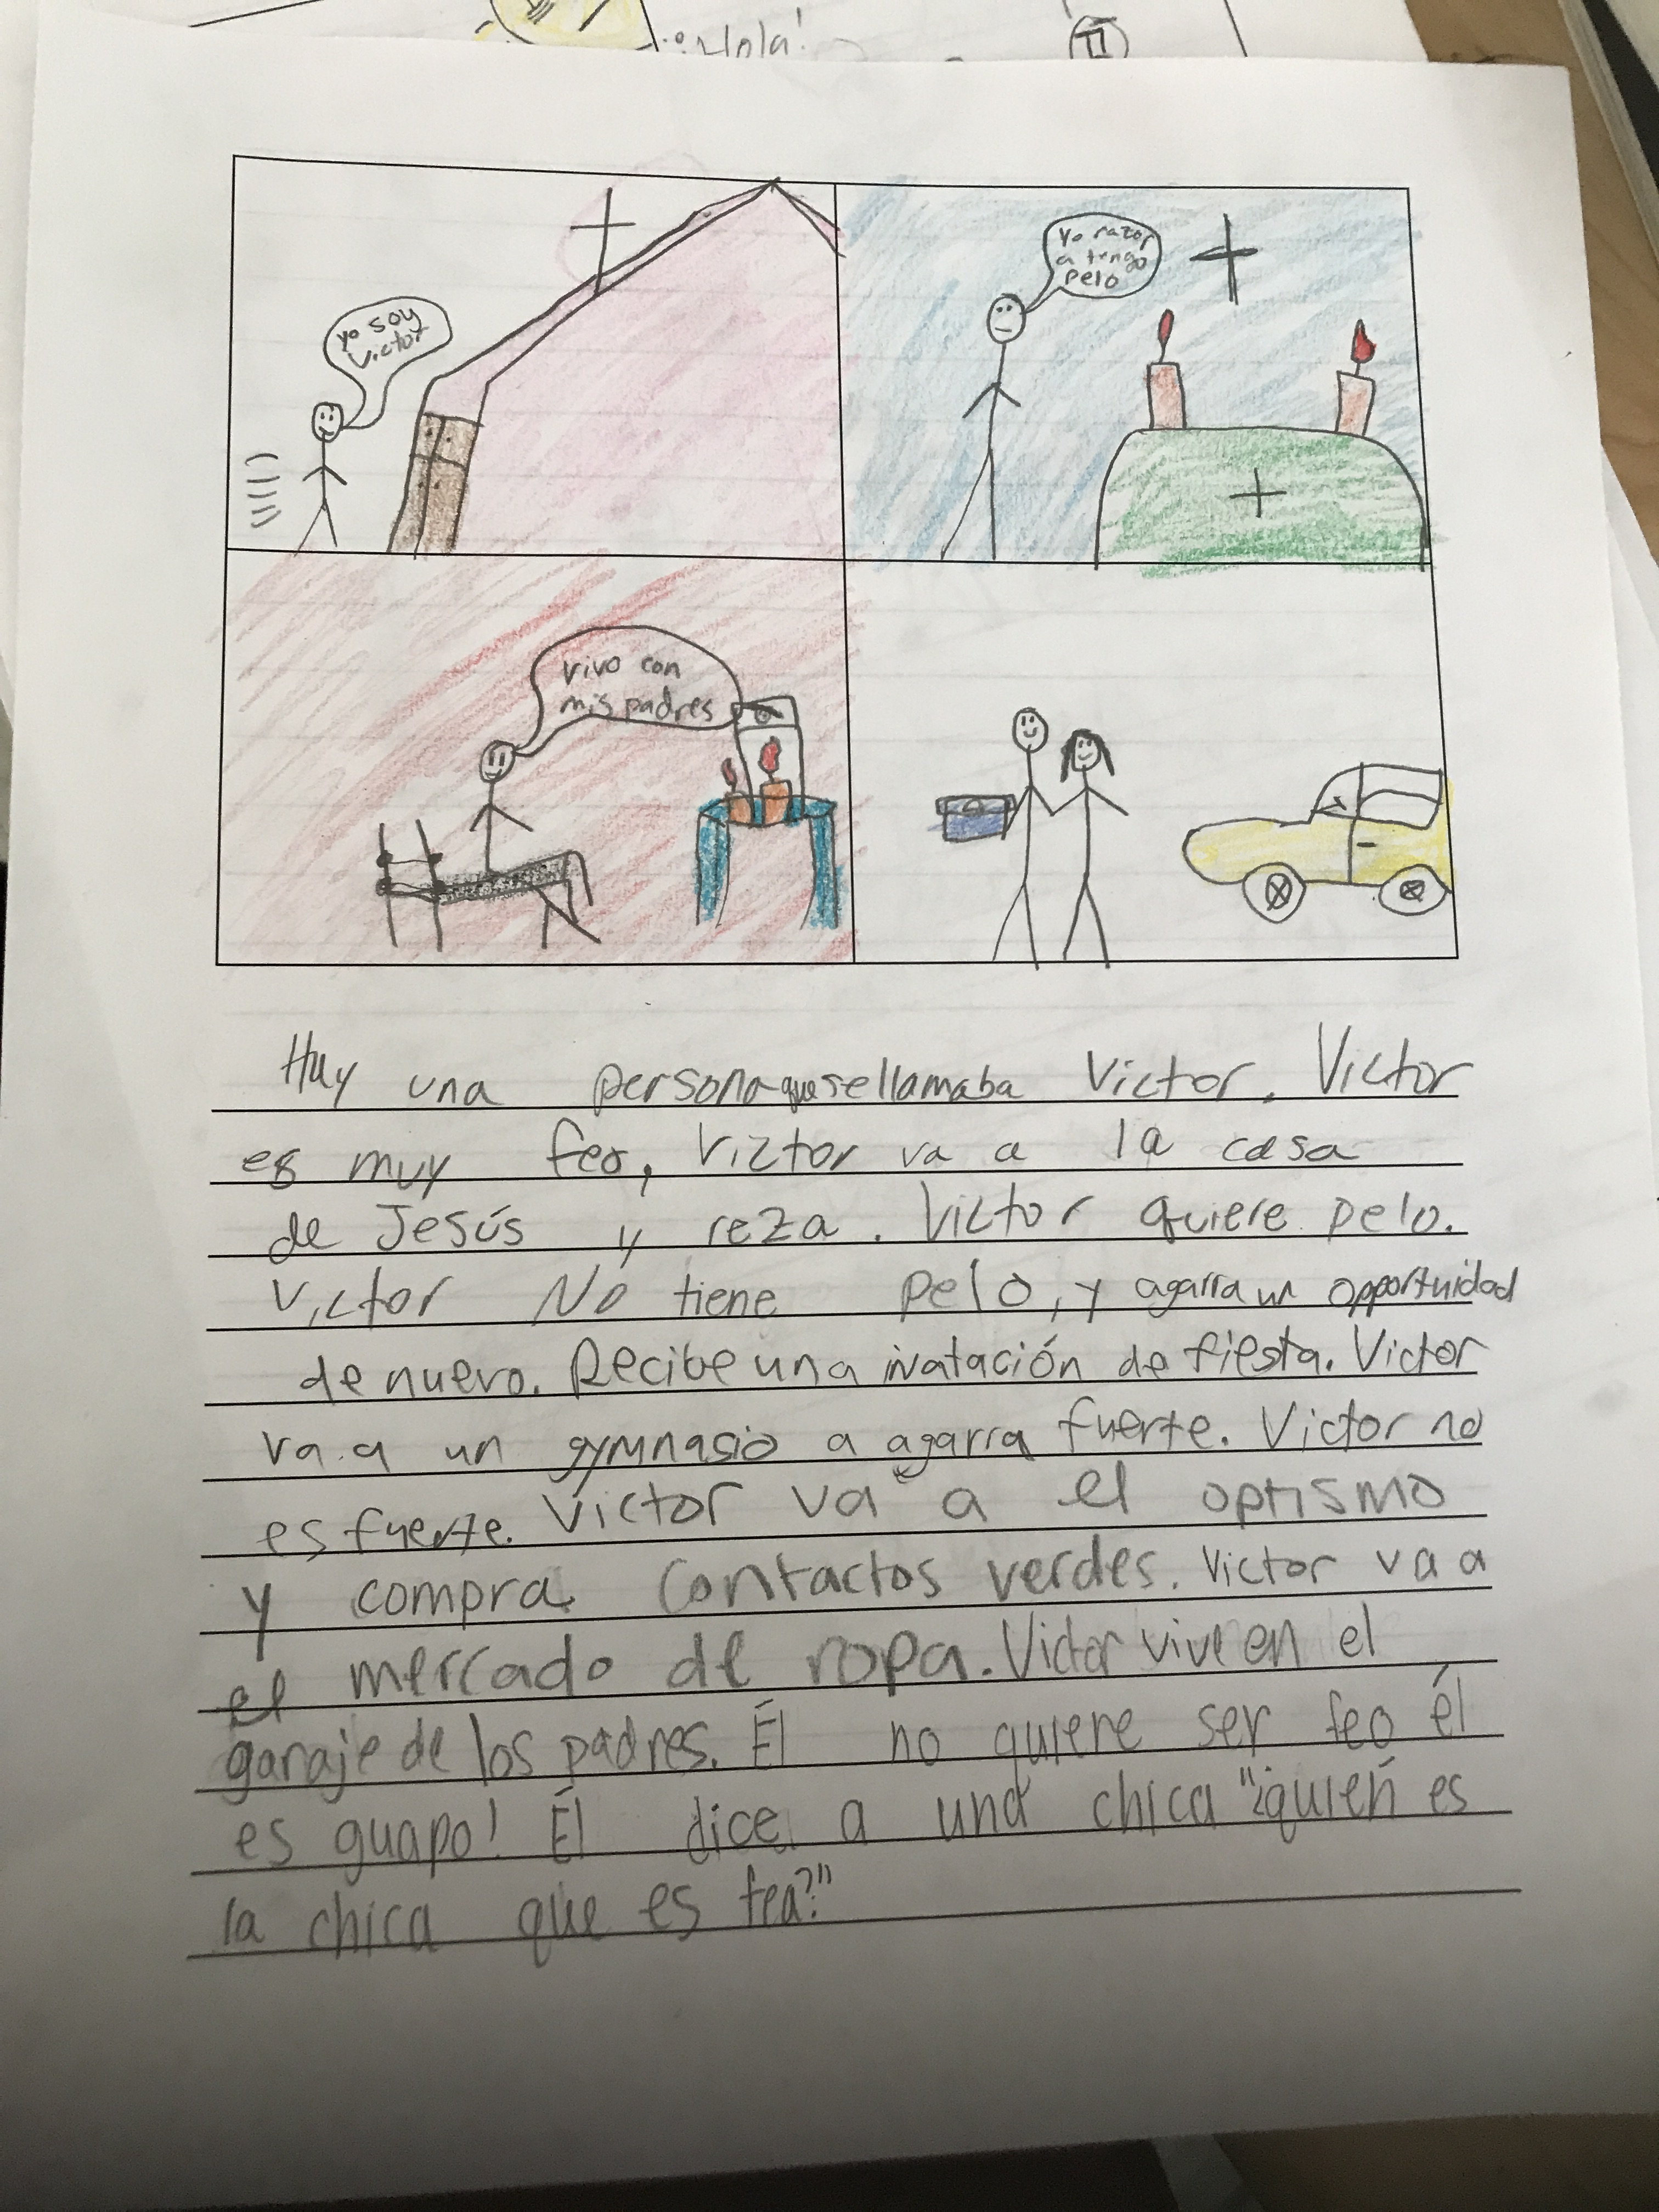 ¡Hola!
yo soy
Victor
Yo razor
a tengo
pelo
vivo con
mis padres
Hay una persona que se llamaba Victor. Victor
es muy feo, Victor va a la casa
de Jesús y reza. Victor quiere pelo.
Victor No tiene pelo, y agarra un opportuidad
de nuevo. Recibe una ivatación de fiesta. Victor
va a un gymnasio a agarra fuerte. Victor no
es fuerte. Victor va a el optismo
y compra contactos verdes. Victor va a
el mercado de ropa. Victor vive en el
garaje de los padres. Él no quiere ser feo él
es guapo! Él dice a una chica "¿quién es
la chica que es fea?"